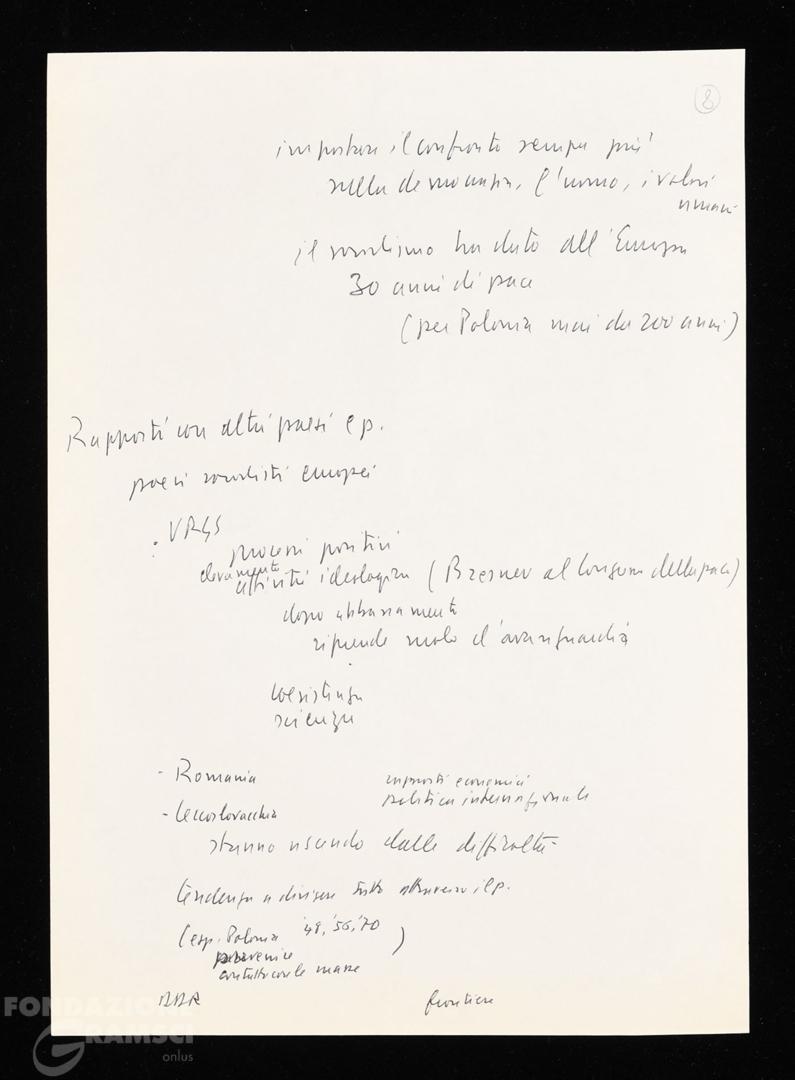 8
impostare il confronto sempre più
sulla democrazia, l'uomo, i valori
umani
il socialismo ha dato all'Europa
30 anni di pace
(per Polonia mai da 200 anni)
Rapporti con altri paesi e p.
paesi socialisti europei
: URSS
processi positivi
elevamento
attività ideologica (Breznev al Congresso della pace)
dopo abbassamento
riprende ruolo d'avanguardia
coesistenza
scienza
- Romania
rapporti economici
politica internazionale
- Cecoslovacchia
stanno uscendo dalle difficoltà
tendenza a dirigere tutto attraverso il p.
(esp. Polonia '48, '56, '70
contatto con le masse
)
DDR
frontiere
FONDAZIONE
GRAMSCI
onlus